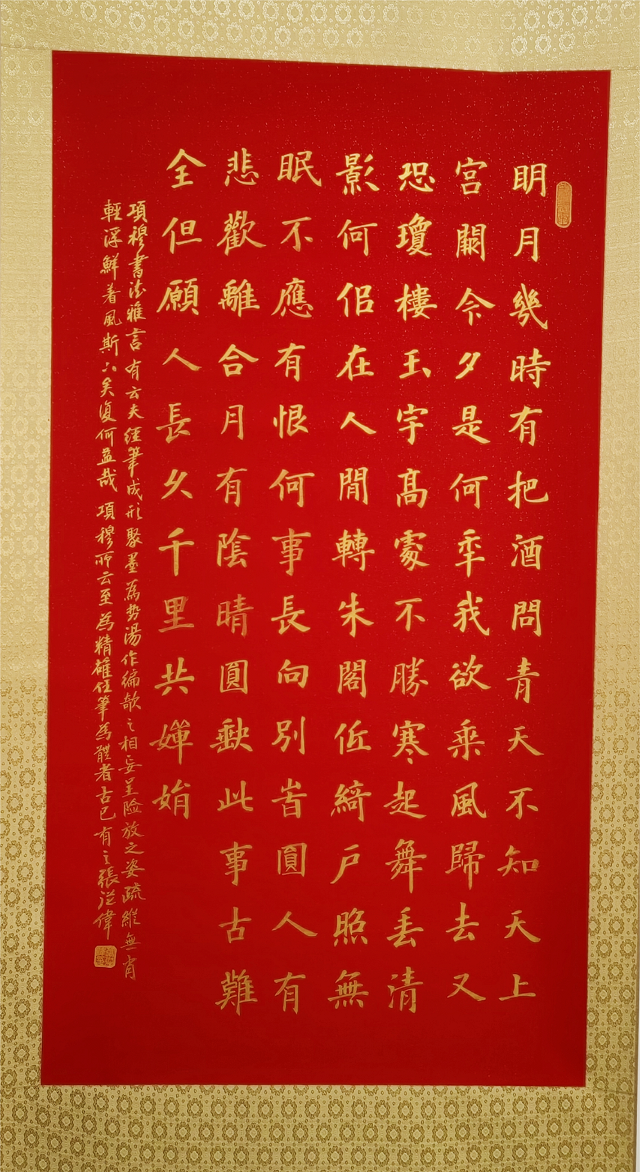 明月幾時有把酒問青天不知天上
宮闕今夕是何秊我欲乘風歸去又
恐瓊樓玉宇高處不勝寒起舞弄清
影何佀在人閒轉朱閣低綺戶照無
眠不應有恨何事長向別旹圓人有
悲歡離合月有陰晴圓缺此事古難
全但願人長久千里共嬋娟
項穆書法雅言有云夫筆成形聚墨為勢作欹之相妄呈险放之姿疏縱無
輕浮鮮着風斯下矣復何益哉項穆所云至為精確任筆為體者古已有之張偉